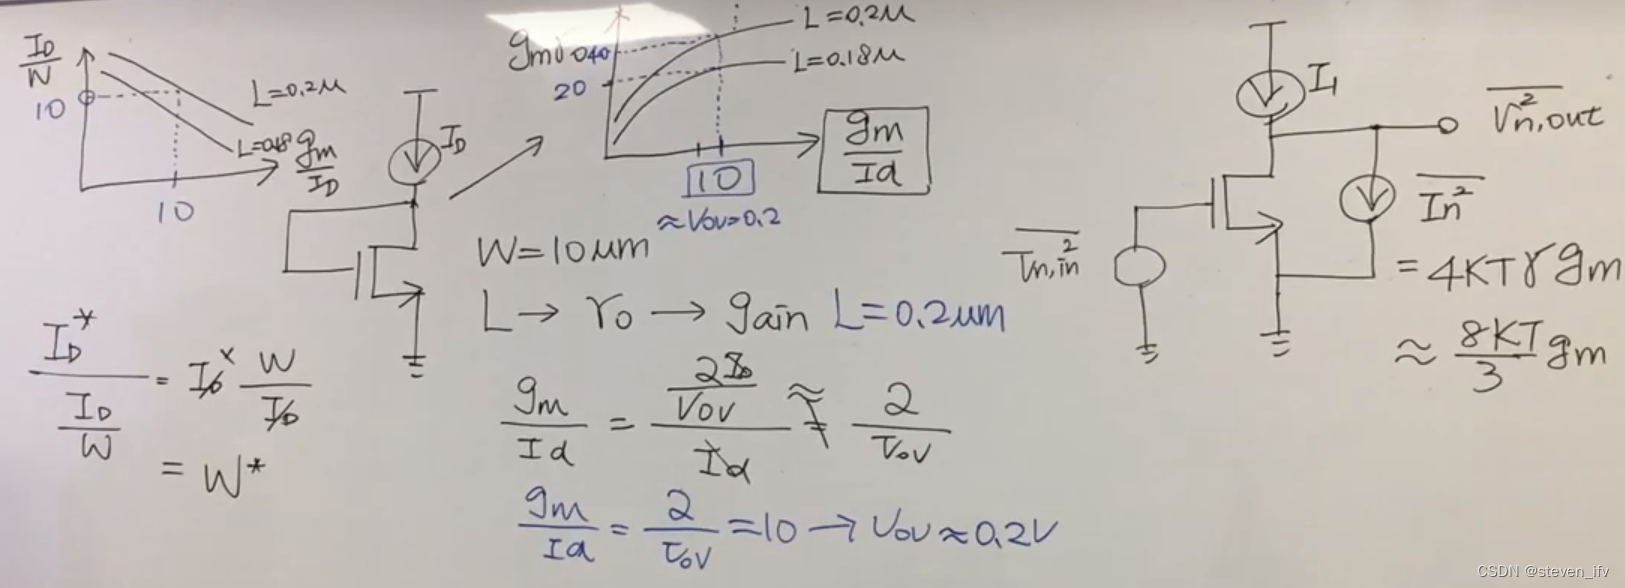 I_D/W
10
L=0.2μ
L=0.18
gm/I_D
10
I_D
gmro
40
20
L=0.2μ
L=0.18μ
gm/Id
10
≈Vov=0.2
W=10μm
L→ ro → gain L=0.2um
I_D*/(I_D/W) = I_D* W/I_D
= W*
gm/Id = (2I_D/Vov)/Id ≈ 2/Vov
gm/Id = 2/Vov = 10 → Vov≈0.2V
I₁
Vn,out²
Vn,in²
In²
= 4KTγgm
≈ 8KT/3 gm
CSDN @steven_ifv